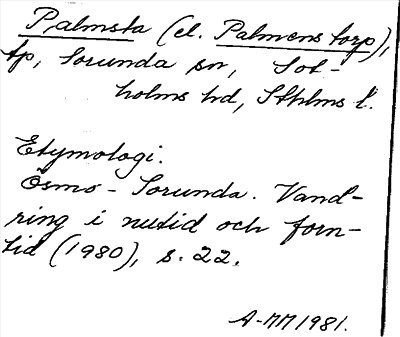 Palmsta (el. Palmens torp),
tp, Sorunda sn, Sot-
holms hd, Sthlms l.
Etymologi.
Ösmo - Sorunda. Vand-
ring i nutid och forn-
tid (1980), s. 22.
A-MM 1981.